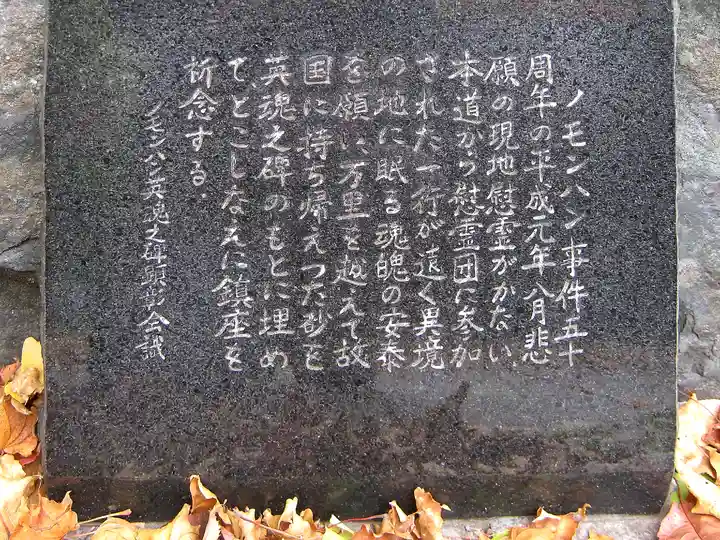 ノモンハン事件五十
周年の平成元年八月悲
願の現地慰霊がかない
本道から慰霊団に参加
された一行が遠く異境
の地に眠る魂魄の安泰
を願い万里を越えて故
国に持ち帰えつた砂を
英魂之碑のもとに埋め
て、とこしなえに鎮座を
祈念する．
ノモンハン英魂之碑顕彰会誠